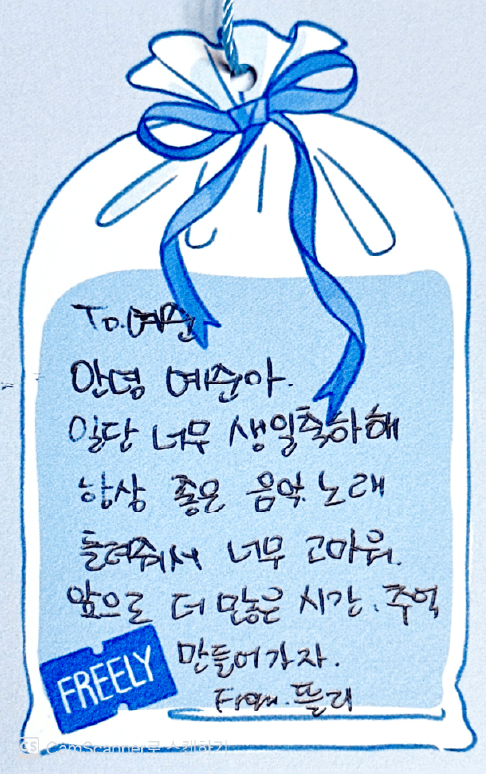 To.예준
안녕 예준아.
일단 너무 생일축하해
항상 좋은 음악 노래
들려줘서 너무 고마워.
앞으로 더 많은 시간. 추억
만들어가자.
From. 뜰리
FREELY
CS CamScanner로 스캔하기